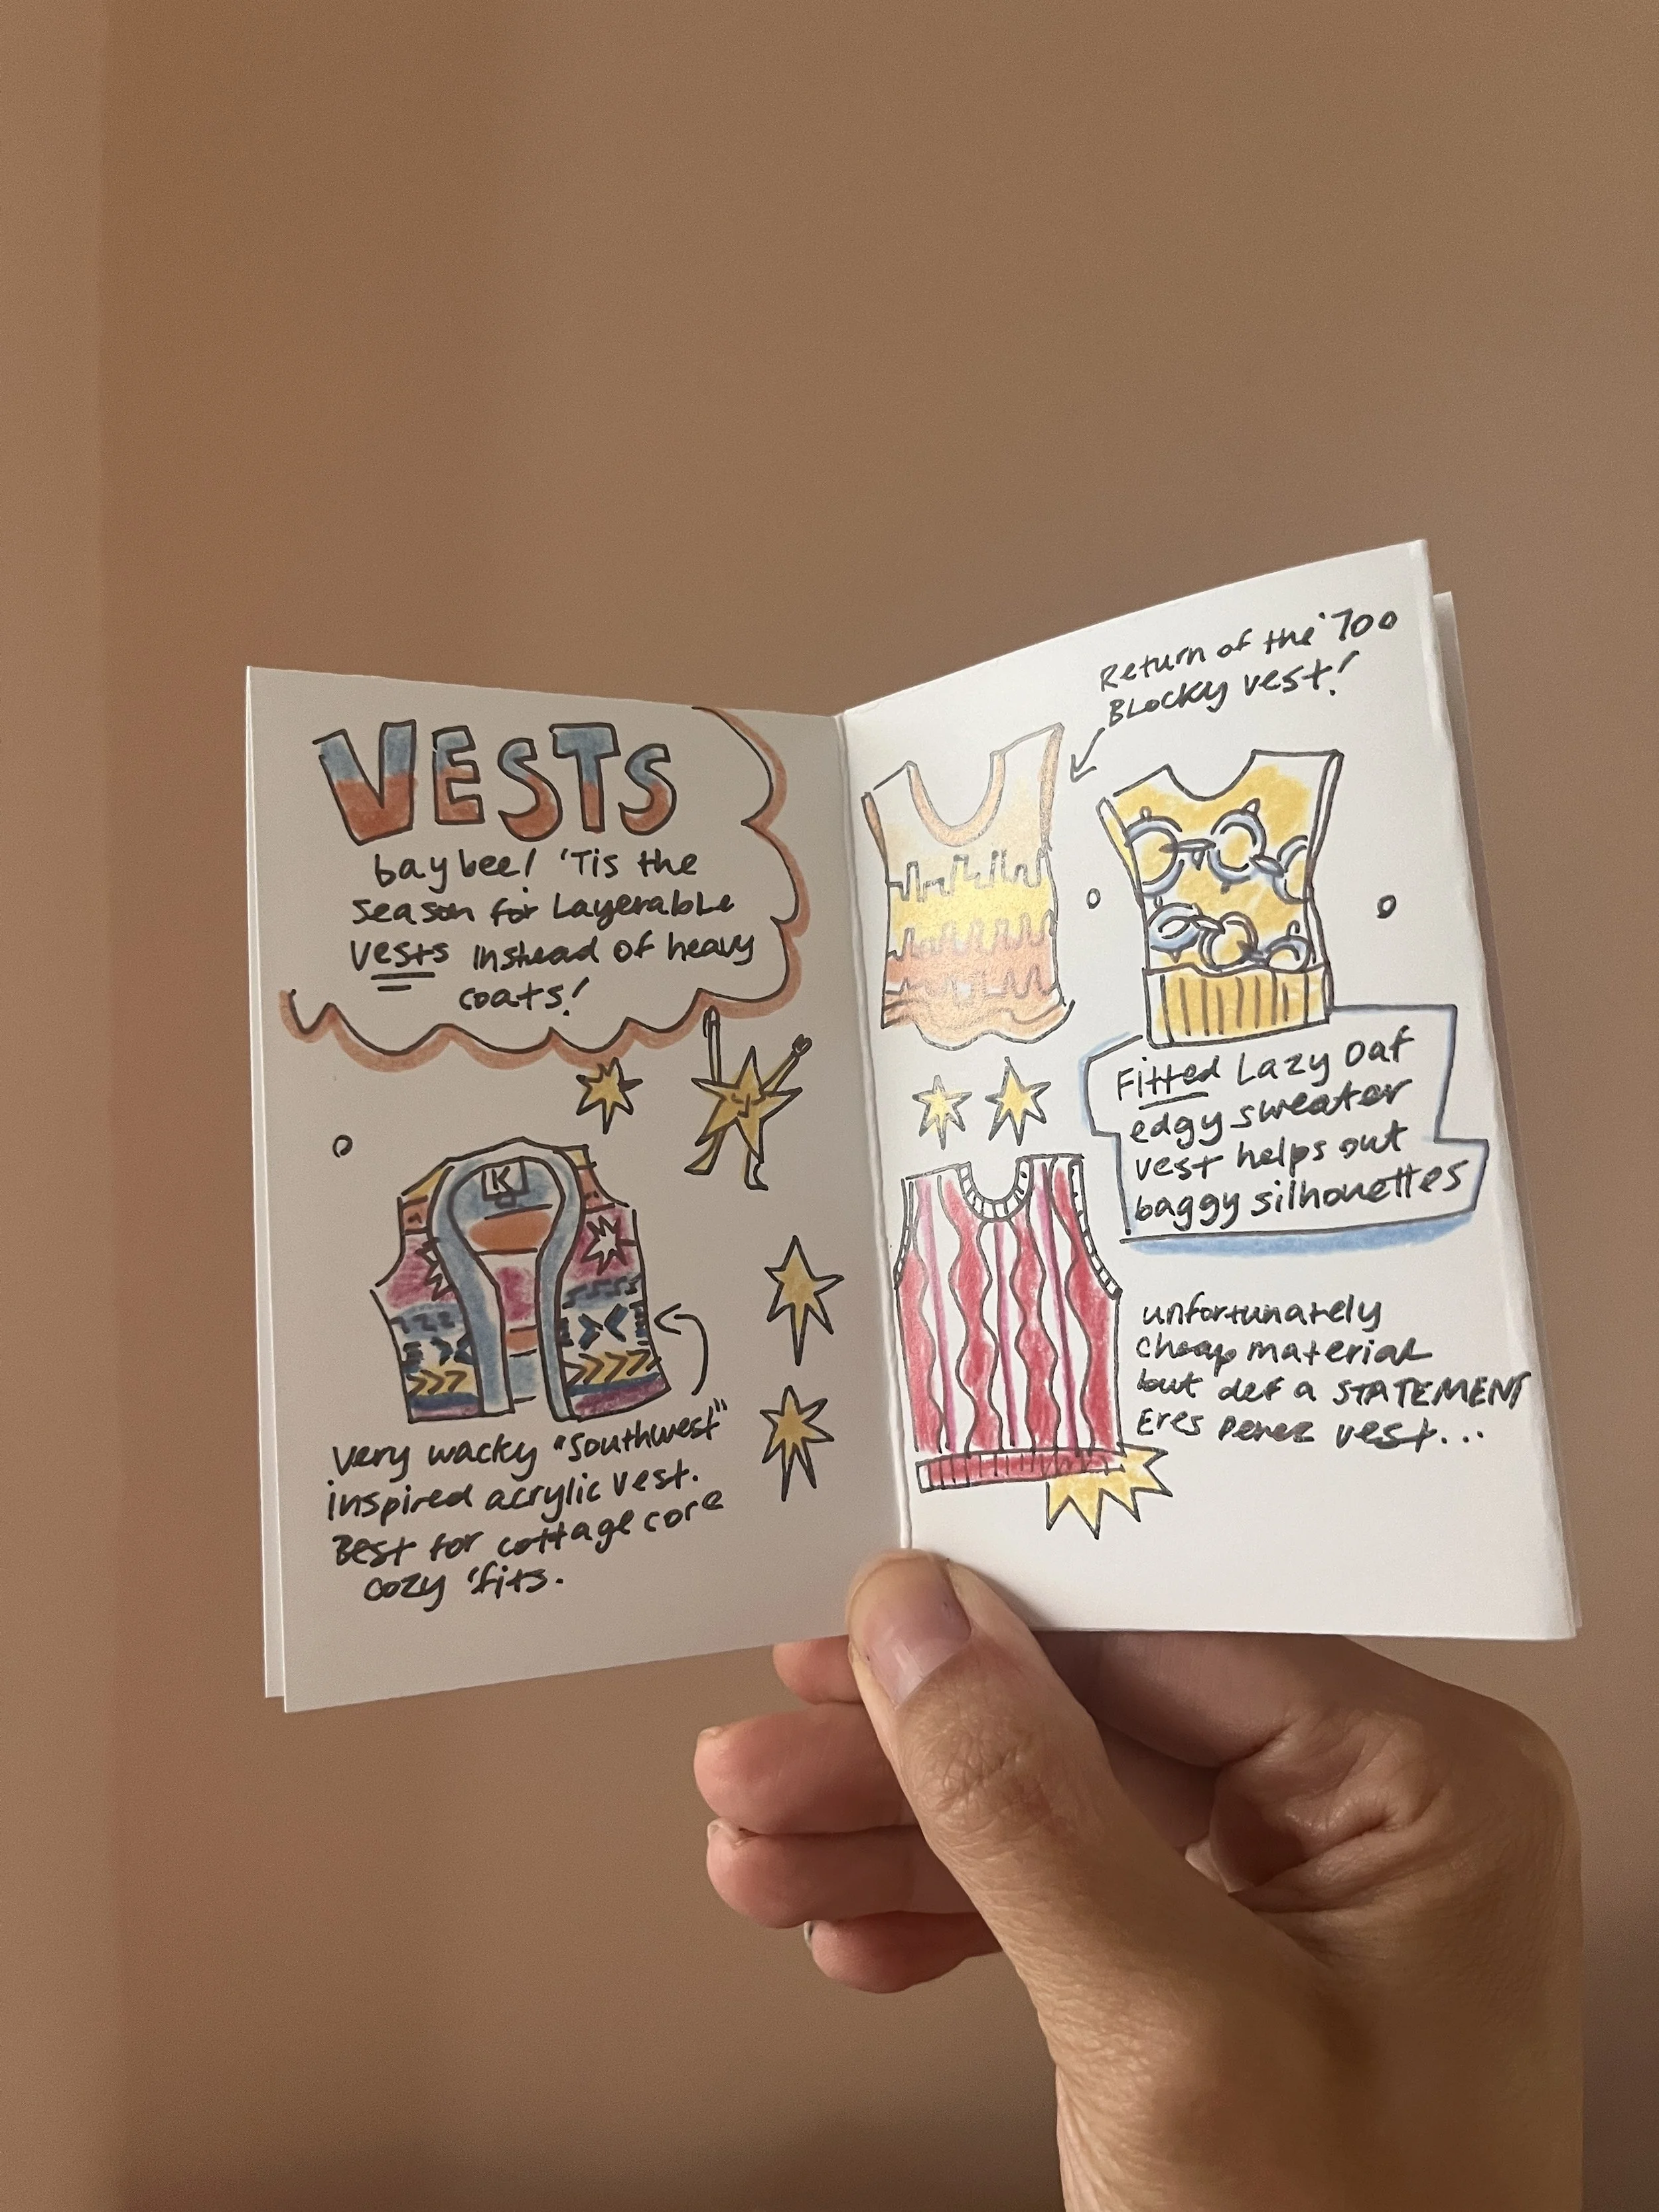 VESTS
baybee! 'Tis the
season for Layerable
vests instead of heavy
coats!
K
Very wacky "Southwest"
inspired acrylic vest.
Best for cottage core
cozy 'fits.
Return of the '70s
BLocky vest!
Fitted Lazy Oaf
edgy sweater
vest helps out
baggy silhouettes
unfortunately
cheap material
but def a STATEMENT
Eres Perez vest...